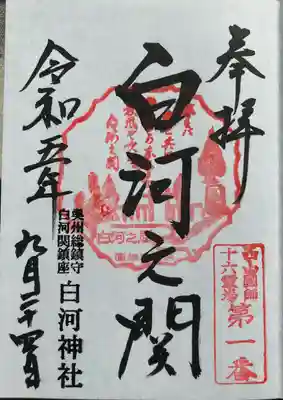 奉拝
中山國師
十六霊場
第一番
白河之関
白河之関
奥州総鎮守
白河関鎮座
白河神社
令和五年
九月二十四日